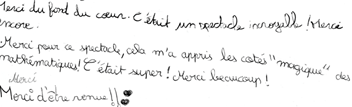 Merci du fond du cœur. C'était un spectacle incroyable. Merci
encore.
Merci pour ce spectacle, cela m'a appris les cotés "magique" des
mathématiques! C'était super! Merci beaucoup!
Merci
Merci d'être venue!!